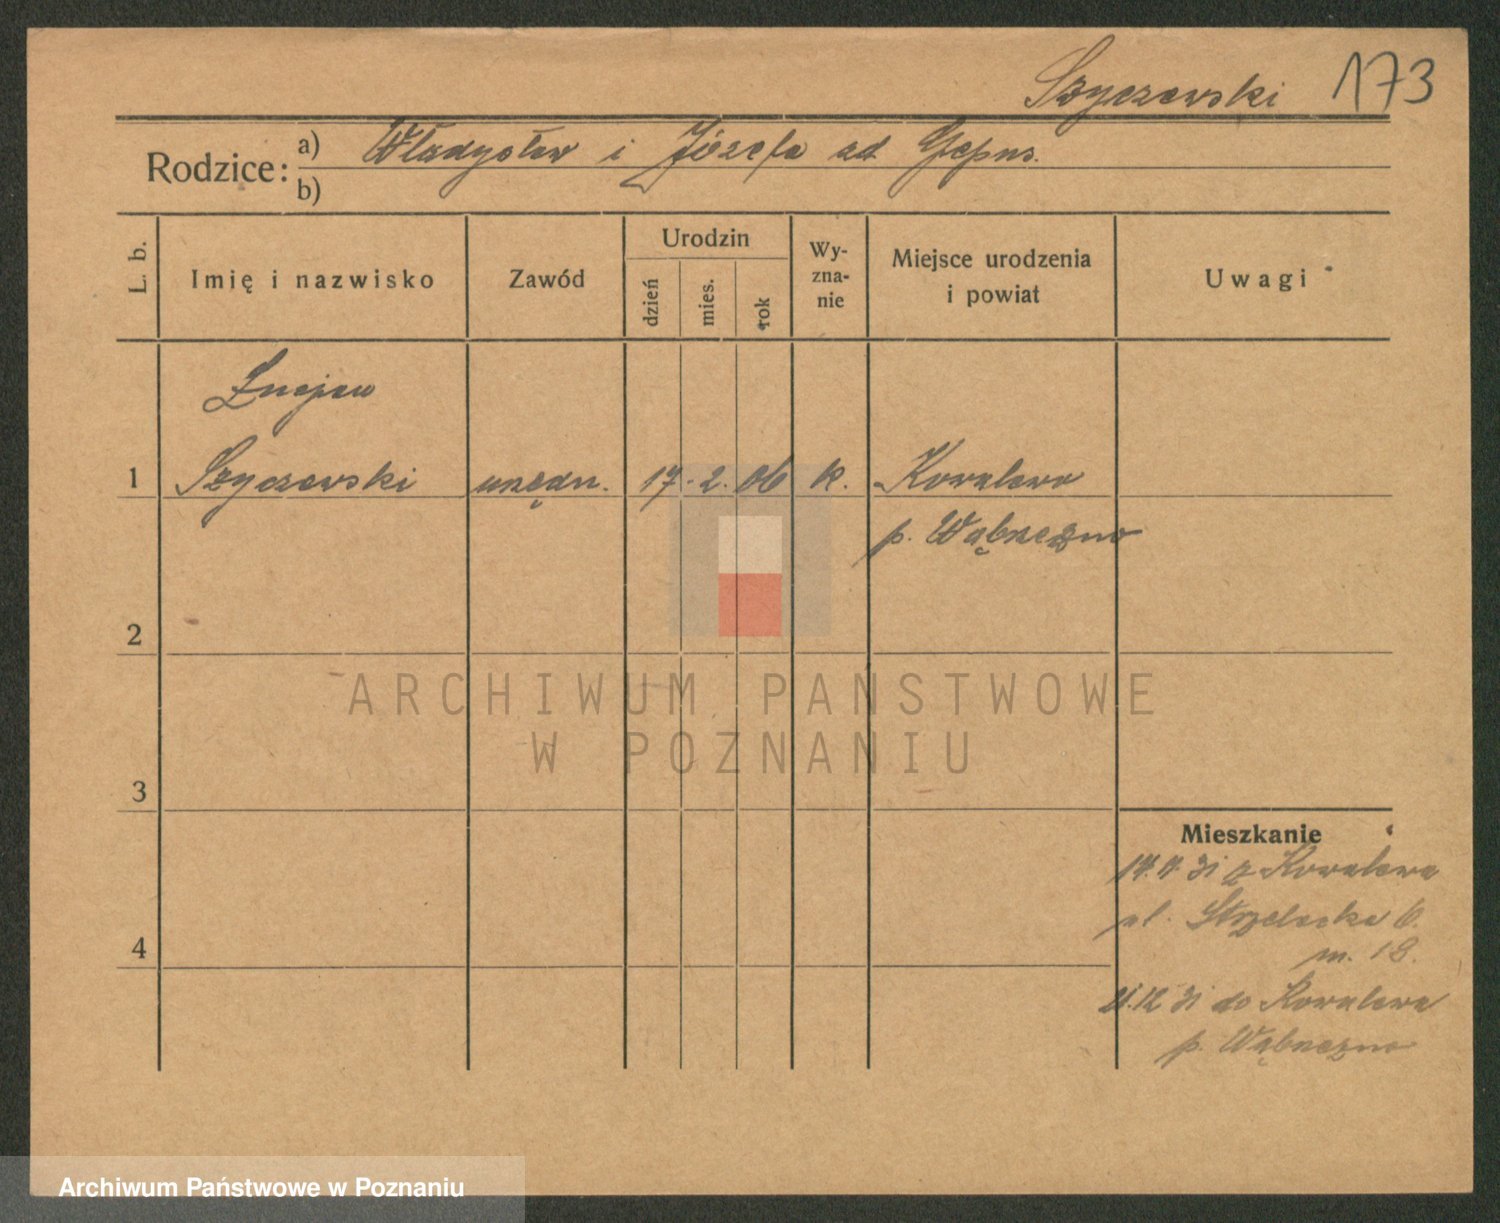 Szyczewski 173
Rodzice: a) Władysław i Józefa
b)
L. b. Imię i nazwisko Zawód Urodzin dzień mies. rok Wy-zna-nie Miejsce urodzenia i powiat Uwagi
1 Szyczewski urzędn. 17. 2. 06 k. Kowalewo
p. Wąbrzeźno
2
3
Mieszkanie
z Kowalewa
ul. Strzelecka 6.
m. 18.
4
12 31 do Kowalewa
p. Wąbrzeźno
ARCHIWUM PAŃSTWOWE
W POZNANIU
Archiwum Państwowe w Poznaniu